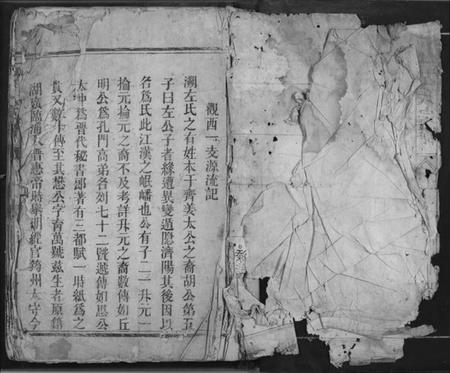 觀西一支源流記
溯左氏之有姓本于齊姜太公之裔胡公第五
子曰左公子者緣遭異變遁隱濟陽其後因以
名為氏此江漢之岷嶓也公有子二一丘元一
掄元掄元之裔不及考詳丘元之裔數傳如丘
明公為孔門高弟名列七十二賢遞傳如思公
太冲為晉代秘書郎著有三都賦一時紙為之
貴又數十傳至其懋公字畜萬號茲生者原籍
湖廣 人 帝時 明經官筠州太守今